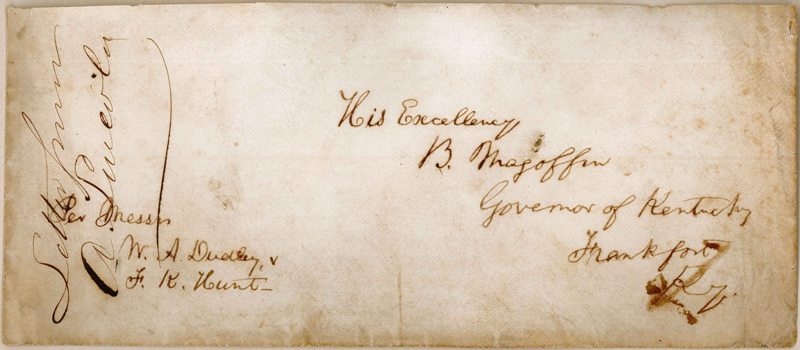 Letter from
A. Lincoln
Per Messrs
W. A Dudley, &
F. K. Hunt—
His Excellency
B. Magoffin
Governor of Kentucky
Frankfort
Ky.